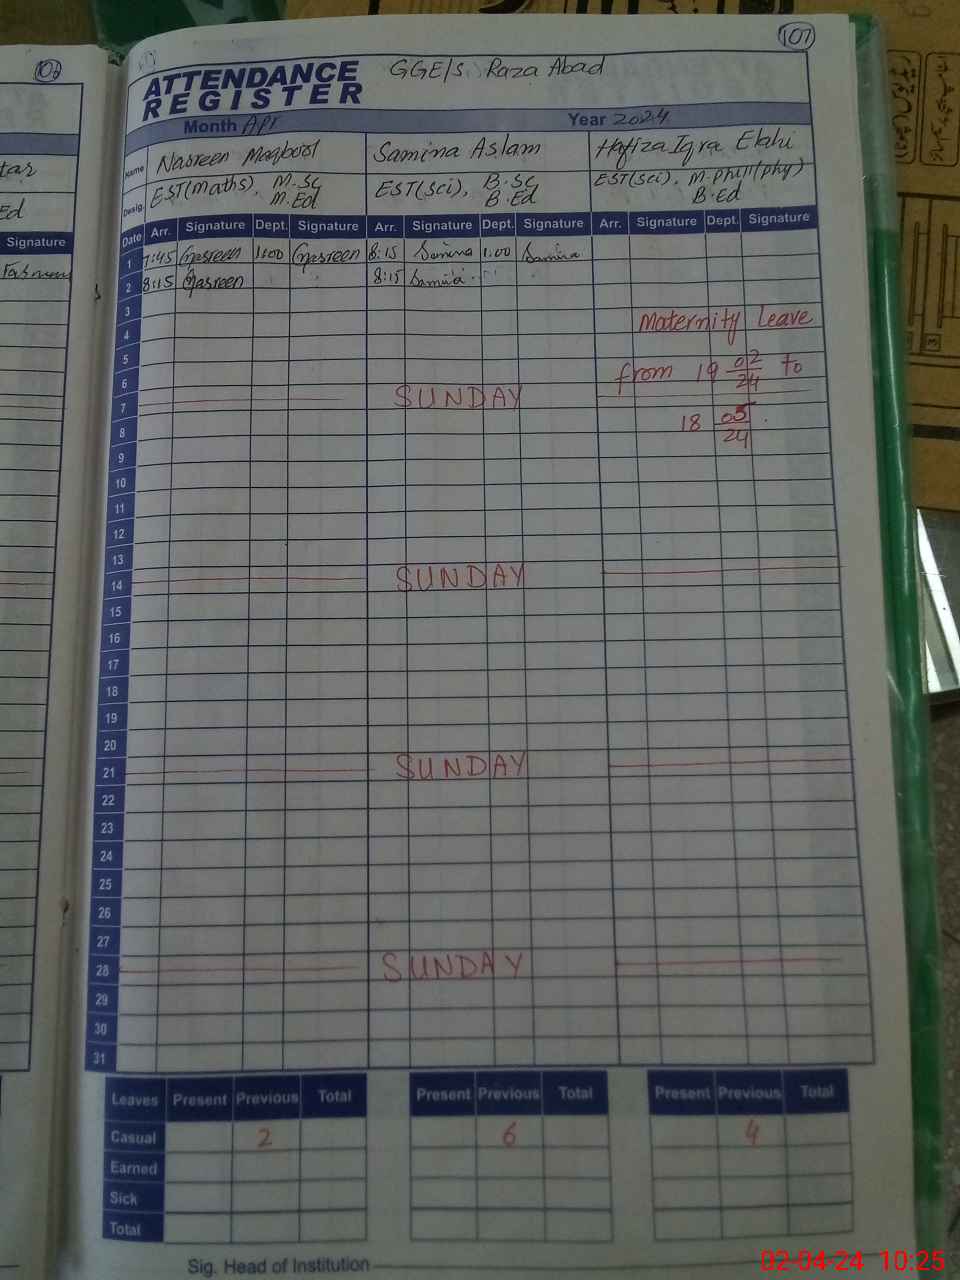 106
107
ATTENDANCE REGISTER
GGE/S Raza Abad
Month Apr Year 2024
Name Nasreen Maqbool Samina Aslam Hafiza Iqra Elahi
Desig. EST(Maths), M.Sc M.Ed EST(Sci), B.Sc B.Ed EST(Sci), M.Phill(phy) B.Ed
Date Arr. Signature Dept. Signature Arr. Signature Dept. Signature Arr. Signature Dept. Signature
Signature
1 7:45 Nasreen 1:00 Nasreen 8:15 Samina 1:00 Samina
2 8:15 Nasreen 8:15 Samina
3
Maternity Leave
4
5
from 19 02/24 to
6
7 SUNDAY
18 05/24.
8
9
10
11
12
13
14 SUNDAY
15
16
17
18
19
20
21 SUNDAY
22
23
24
25
26
27
28 SUNDAY
29
30
31
Leaves Present Previous Total Present Previous Total Present Previous Total
Casual 2 6 4
Earned
Sick
Total
Sig. Head of Institution
02-04-24 10:25